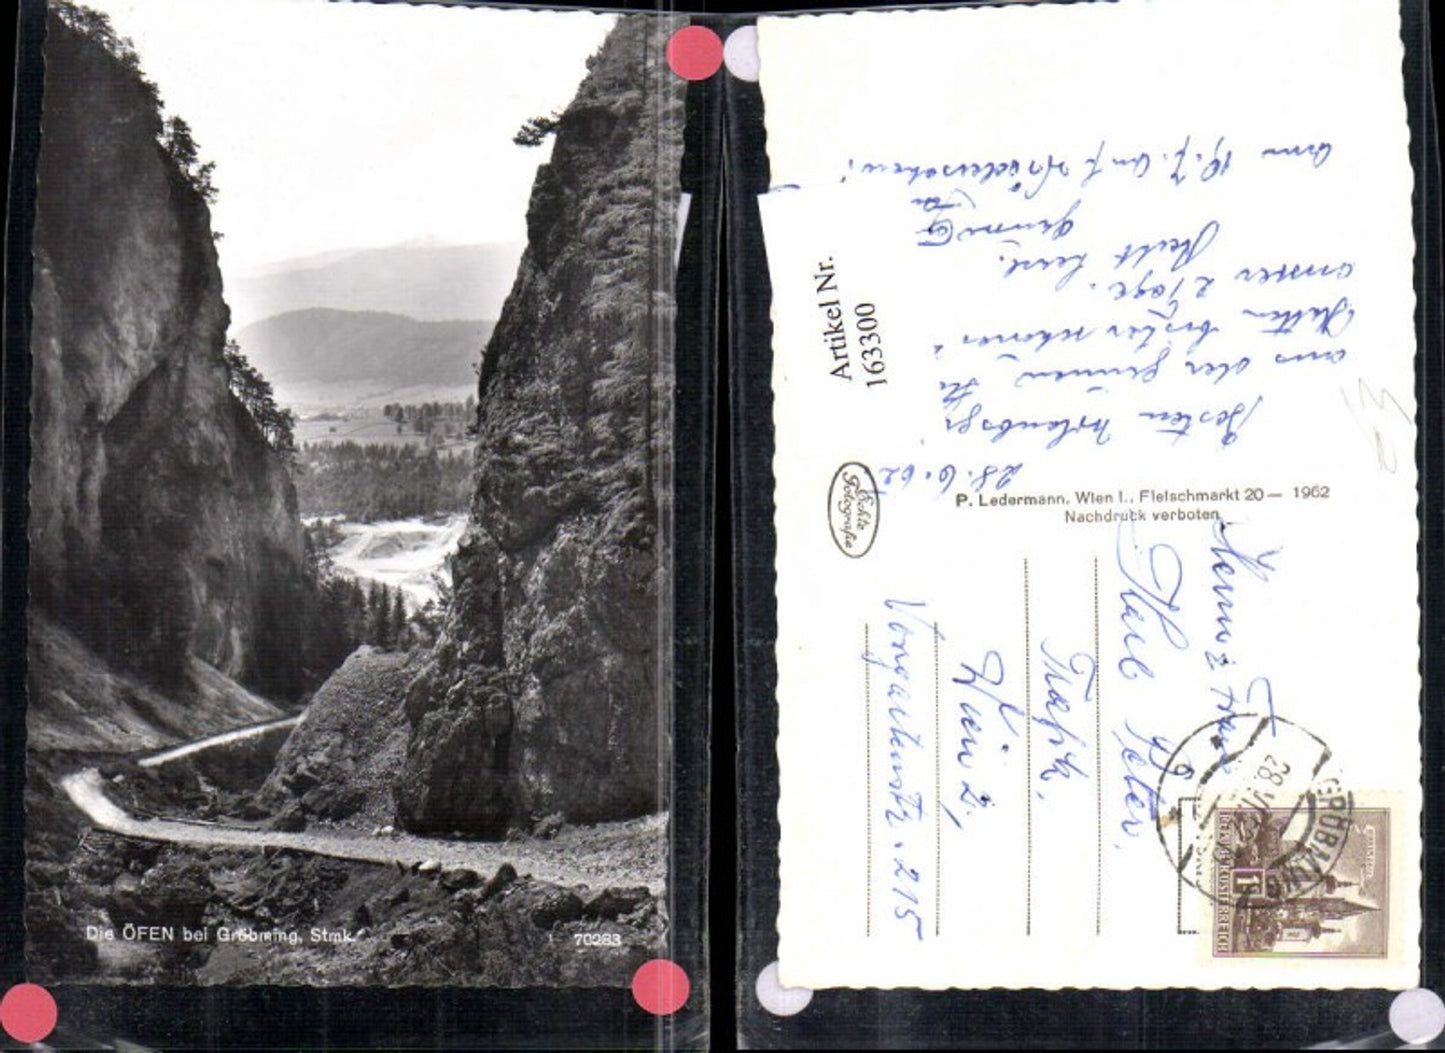 Die ÖFEN bei Gröbming, Stmk.
70283
Artikel Nr.
163300
Echte
Fotografie
P. Ledermann, Wien I., Fleischmarkt 20 — 1962
Nachdruck verboten
28.6.62
Besten Urlaubsgr
aus der grünen
bisher schönes
2 Tage.
am 19.7. Auf Wiedersehen!
Herrn u. Frau
Karl Peter,
Trafik,
Wien 2,
Vorgartenstr. 215
GRÖBMING
28.VI.62
1
REPUBLIK ÖSTERREICH